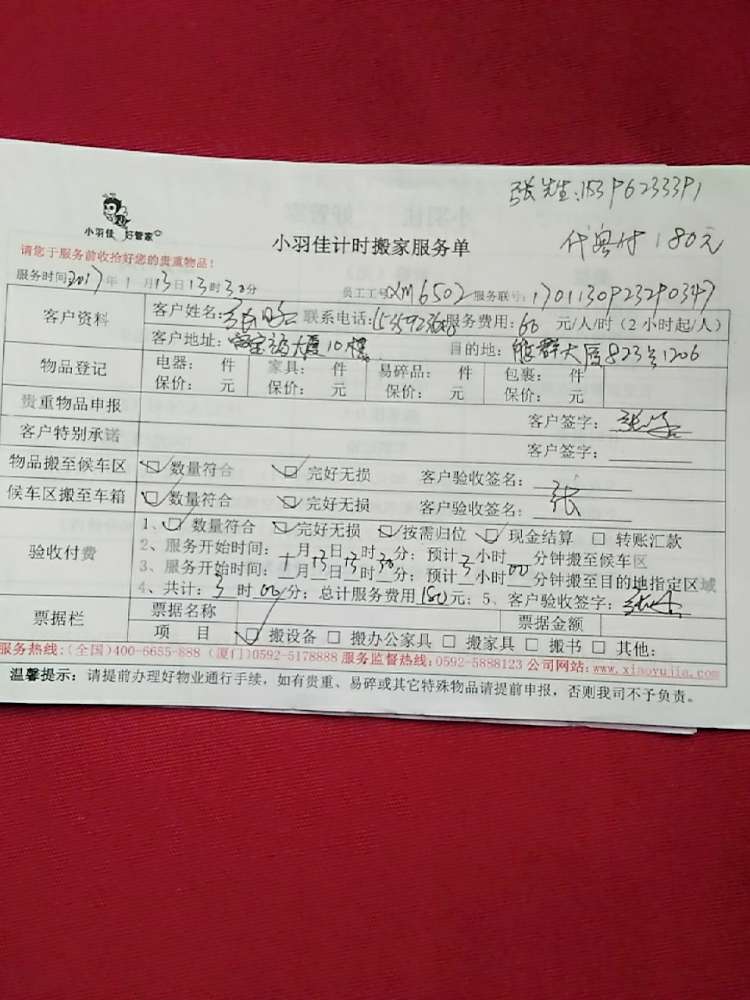 张先生:15396233391
代粤付180元
小羽佳 好管家
小羽佳计时搬家服务单
请您于服务前收拾好您的贵重物品!
服务时间2017年1月13日13时30分 员工工号XM6502 服务联号:1701130923290347
客户资料 客户姓名: 联系电话: 服务费用:60元/人/时(2小时起/人)
客户地址:宝福大厦10楼 目的地:能群大厦823号1206
物品登记 电器: 件 家具: 件 易碎品: 件 包裹: 件
保价: 元 保价: 元 保价: 元 保价: 元
贵重物品申报 客户签字:
客户特别承诺 客户签字:
物品搬至候车区 ☑数量符合 ☑完好无损 客户验收签名:
候车区搬至车箱 ☑数量符合 ☑完好无损 客户验收签名:张
验收付费 1、☑数量符合 ☑完好无损 ☑按需归位 ☑现金结算 □转账汇款
2、服务开始时间: 月 日 时 分;预计 小时 分钟搬至候车区
3、服务开始时间:1月13日13时30分;预计3小时00分钟搬至目的地指定区域
4、共计:3时00分;总计服务费用180元;5、客户验收签字:
票据栏 票据名称 票据金额
项 目 ☑搬设备 □搬办公家具 □搬家具 □搬书 □其他:
服务热线:(全国)400-6655-888 (厦门)0592-5178888 服务监督热线:0592-5888123 公司网站:www.xiaoyujia.com
温馨提示:请提前办理好物业通行手续,如有贵重、易碎或其它特殊物品请提前申报,否则我司不予负责。